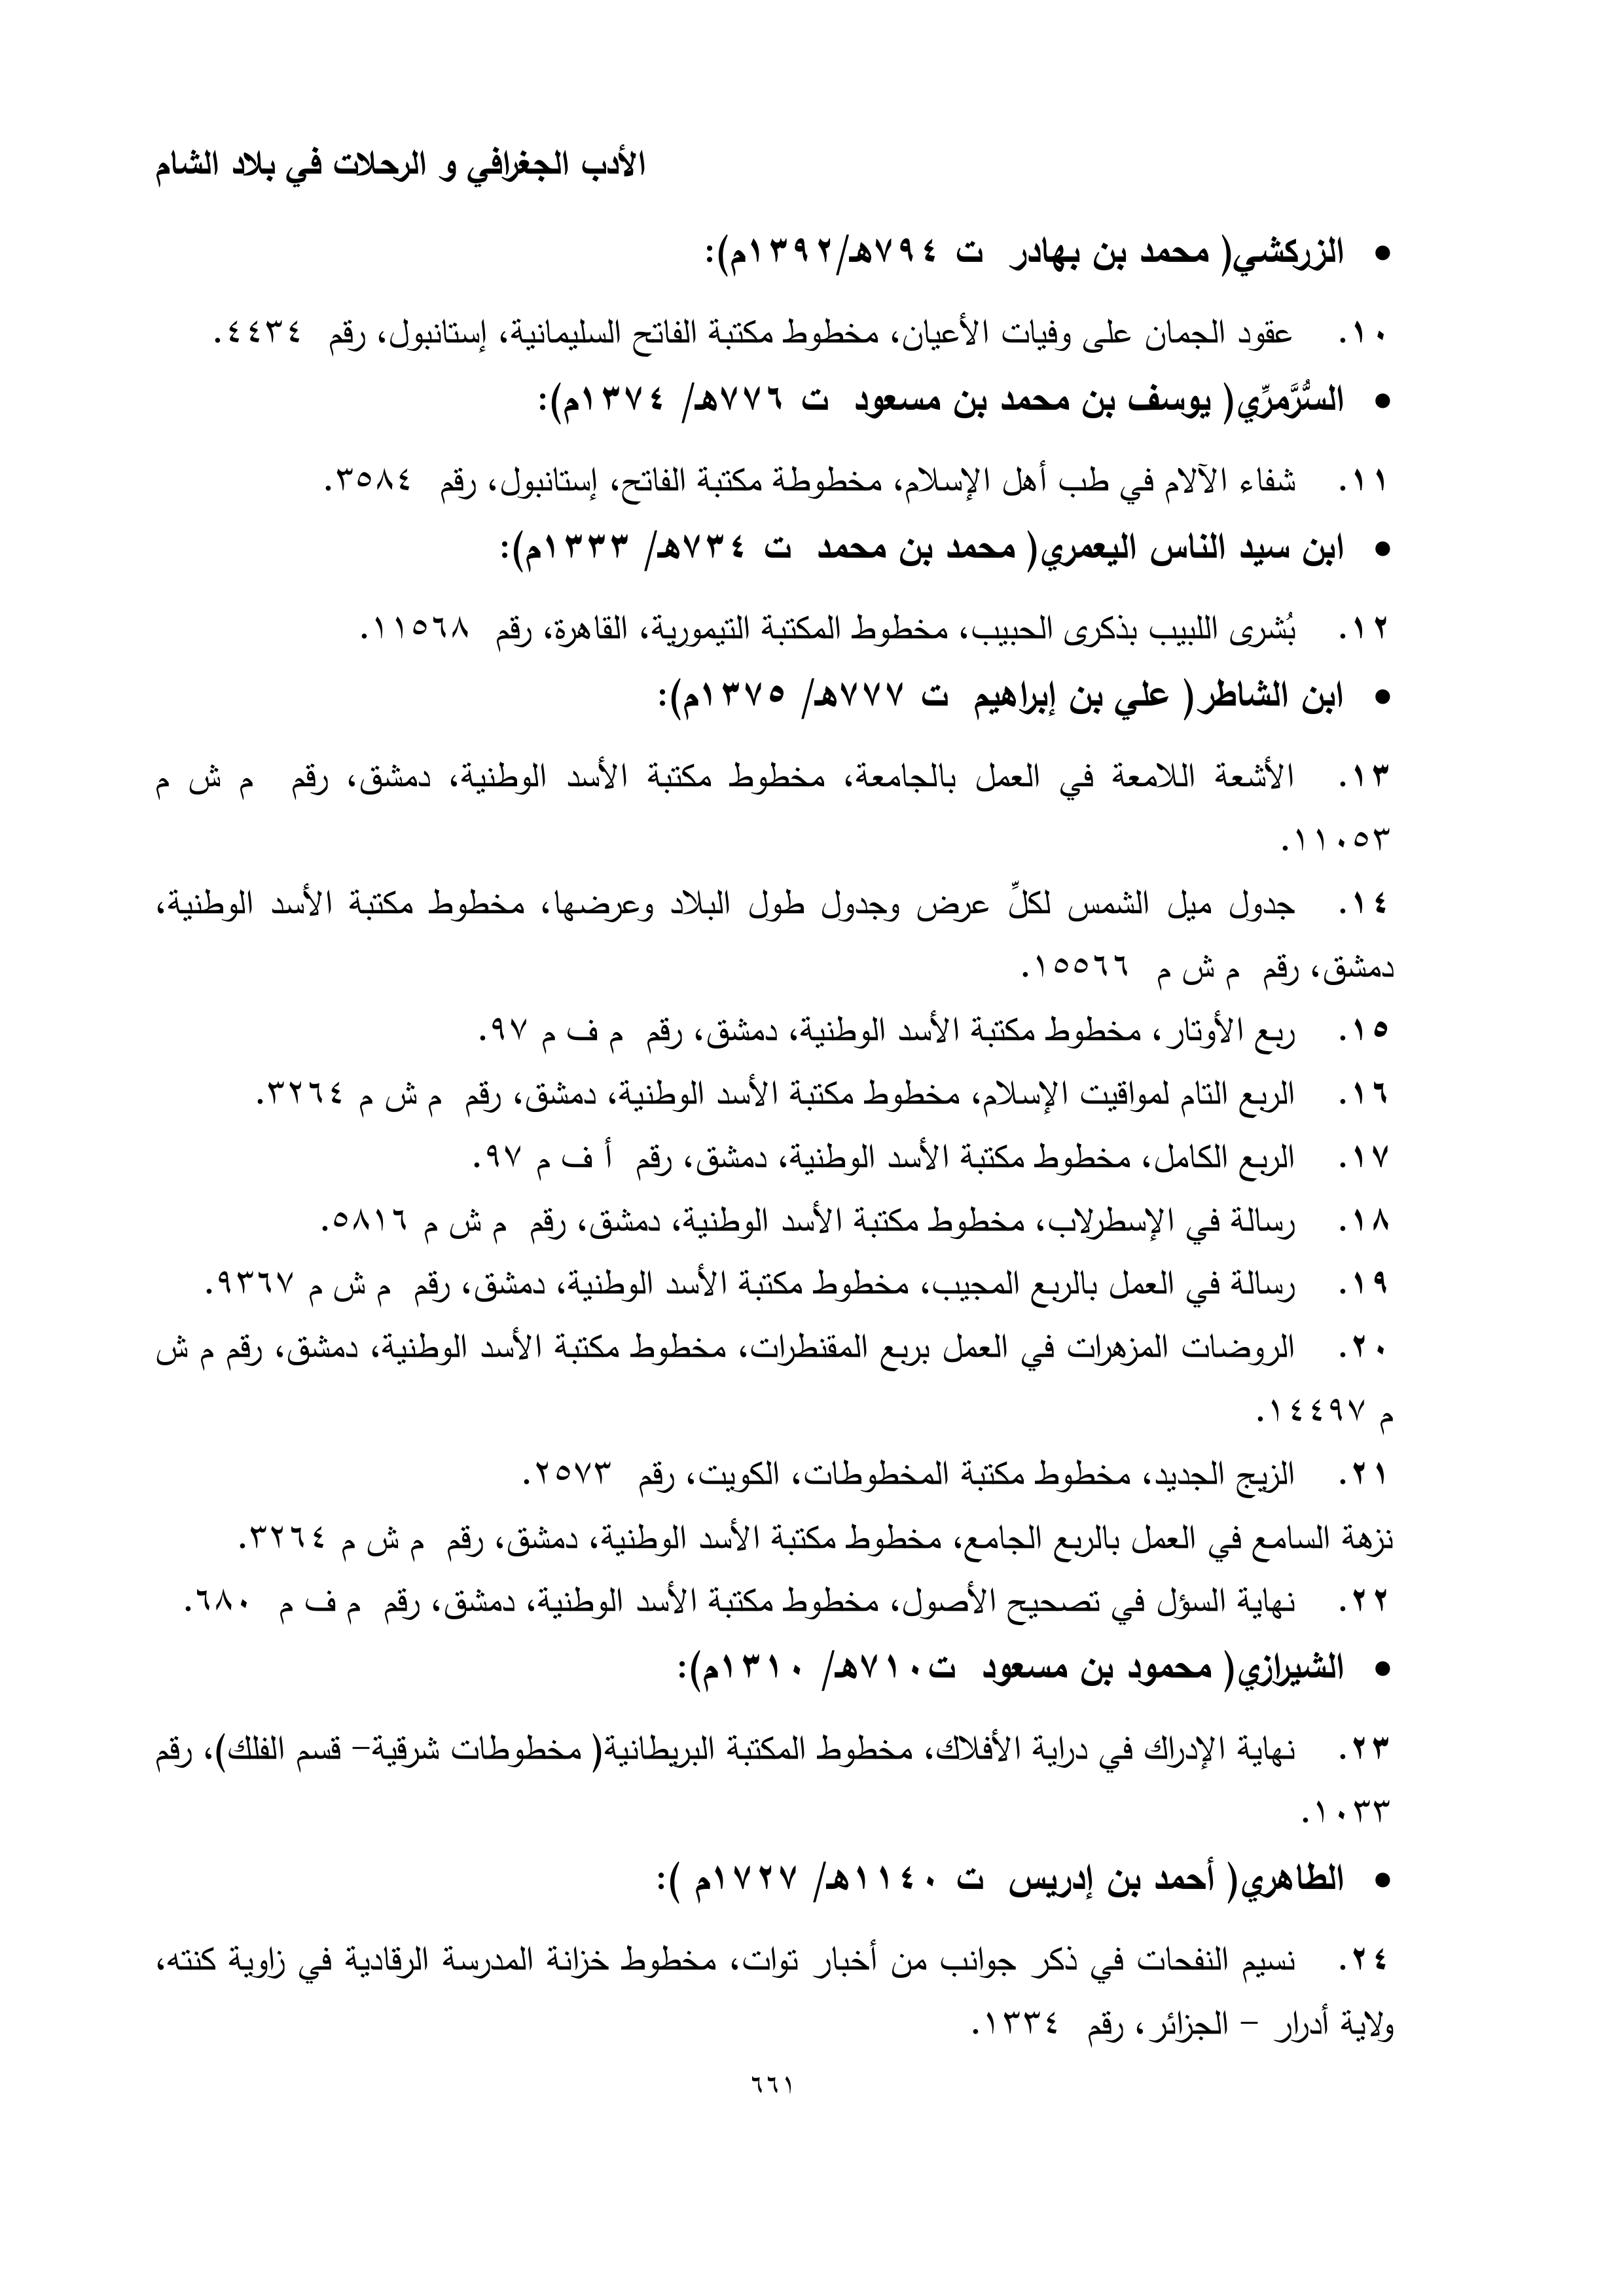 الأدب الجغرافي و الرحلات في بلاد الشام
• الزركشي( محمد بن بهادر ت ٧٩٤هـ/١٣٩٢م):
١٠. عقود الجمان على وفيات الأعيان، مخطوط مكتبة الفاتح السليمانية، إستانبول، رقم ٤٤٣٤.
• السُّرَّمرِّي( يوسف بن محمد بن مسعود ت ٧٧٦هـ/ ١٣٧٤م):
١١. شفاء الآلام في طب أهل الإسلام، مخطوطة مكتبة الفاتح، إستانبول، رقم ٣٥٨٤.
• ابن سيد الناس اليعمري( محمد بن محمد ت ٧٣٤هـ/ ١٣٣٣م):
١٢. بُشرى اللبيب بذكرى الحبيب، مخطوط المكتبة التيمورية، القاهرة، رقم ١١٥٦٨.
• ابن الشاطر( علي بن إبراهيم ت ٧٧٧هـ/ ١٣٧٥م):
١٣. الأشعة اللامعة في العمل بالجامعة، مخطوط مكتبة الأسد الوطنية، دمشق، رقم م ش م
١١٠٥٣.
١٤. جدول ميل الشمس لكلِّ عرض وجدول طول البلاد وعرضها، مخطوط مكتبة الأسد الوطنية،
دمشق، رقم م ش م ١٥٥٦٦.
١٥. ربع الأوتار، مخطوط مكتبة الأسد الوطنية، دمشق، رقم م ف م ٩٧.
١٦. الربع التام لمواقيت الإسلام، مخطوط مكتبة الأسد الوطنية، دمشق، رقم م ش م ٣٢٦٤.
١٧. الربع الكامل، مخطوط مكتبة الأسد الوطنية، دمشق، رقم أ ف م ٩٧.
١٨. رسالة في الإسطرلاب، مخطوط مكتبة الأسد الوطنية، دمشق، رقم م ش م ٥٨١٦.
١٩. رسالة في العمل بالربع المجيب، مخطوط مكتبة الأسد الوطنية، دمشق، رقم م ش م ٩٣٦٧.
٢٠. الروضات المزهرات في العمل بربع المقنطرات، مخطوط مكتبة الأسد الوطنية، دمشق، رقم م ش
م ١٤٤٩٧.
٢١. الزيج الجديد، مخطوط مكتبة المخطوطات، الكويت، رقم ٢٥٧٣.
نزهة السامع في العمل بالربع الجامع، مخطوط مكتبة الأسد الوطنية، دمشق، رقم م ش م ٣٢٦٤.
٢٢. نهاية السؤل في تصحيح الأصول، مخطوط مكتبة الأسد الوطنية، دمشق، رقم م ف م ٦٨٠.
• الشيرازي( محمود بن مسعود ت٧١٠هـ/ ١٣١٠م):
٢٣. نهاية الإدراك في دراية الأفلاك، مخطوط المكتبة البريطانية( مخطوطات شرقية– قسم الفلك)، رقم
١٠٣٣.
• الطاهري( أحمد بن إدريس ت ١١٤٠هـ/ ١٧٢٧م ):
٢٤. نسيم النفحات في ذكر جوانب من أخبار توات، مخطوط خزانة المدرسة الرقادية في زاوية كنته،
ولاية أدرار – الجزائر، رقم ١٣٣٤.
٦٦١